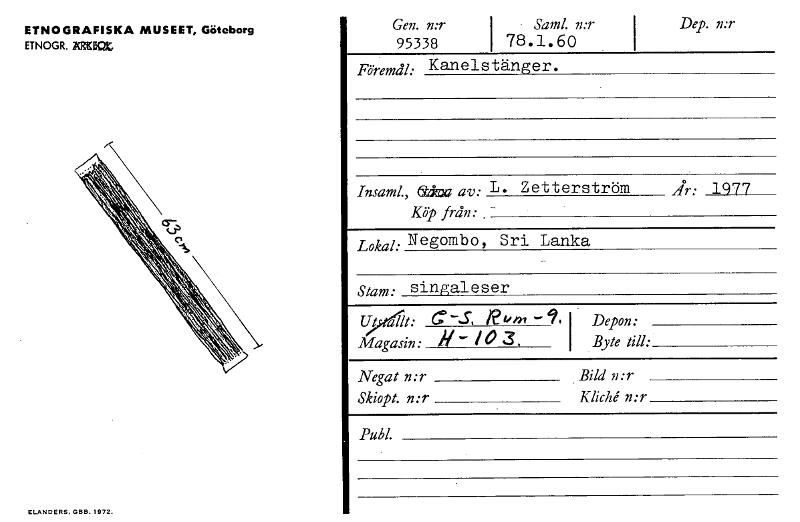 ETNOGRAFISKA MUSEET, Göteborg
ETNOGR. ARKEOL.
63 cm
ELANDERS. GBB. 1972.
Gen. n:r Saml. n:r Dep. n:r
95338 78.1.60
Föremål: Kanelstänger.
Insaml., Gåva av: L. Zetterström År: 1977
Köp från:
Lokal: Negombo, Sri Lanka
Stam: singaleser
Utställt: G-S. Rum-9. Depon:
Magasin: H-103. Byte till:
Negat n:r Bild n:r
Skiopt. n:r Kliché n:r
Publ.